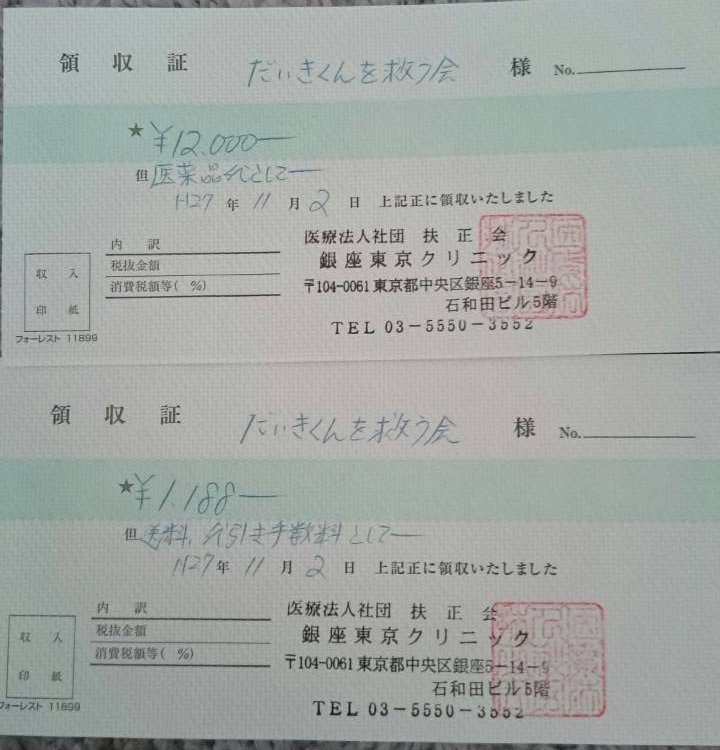 領収証 だいきくんを救う会 様 No.
★ ¥12.000
但 医薬品代として
H27年 11月 2日 上記正に領収いたしました
医療法人社団 扶正会
銀座東京クリニック
〒104-0061 東京都中央区銀座5-14-9
石和田ビル5階
TEL 03-5550-3552
内訳
税抜金額
消費税額等( %)
収入
印紙
フォーレスト 11899
領収証 だいきくんを救う会 様 No.
★ ¥1.188
但 送料、代引き手数料として
H27年 11月 2日 上記正に領収いたしました
医療法人社団 扶正会
銀座東京クリニック
〒104-0061 東京都中央区銀座5-14-9
石和田ビル5階
TEL 03-5550-3552
内訳
税抜金額
消費税額等( %)
収入
印紙
フォーレスト 11899